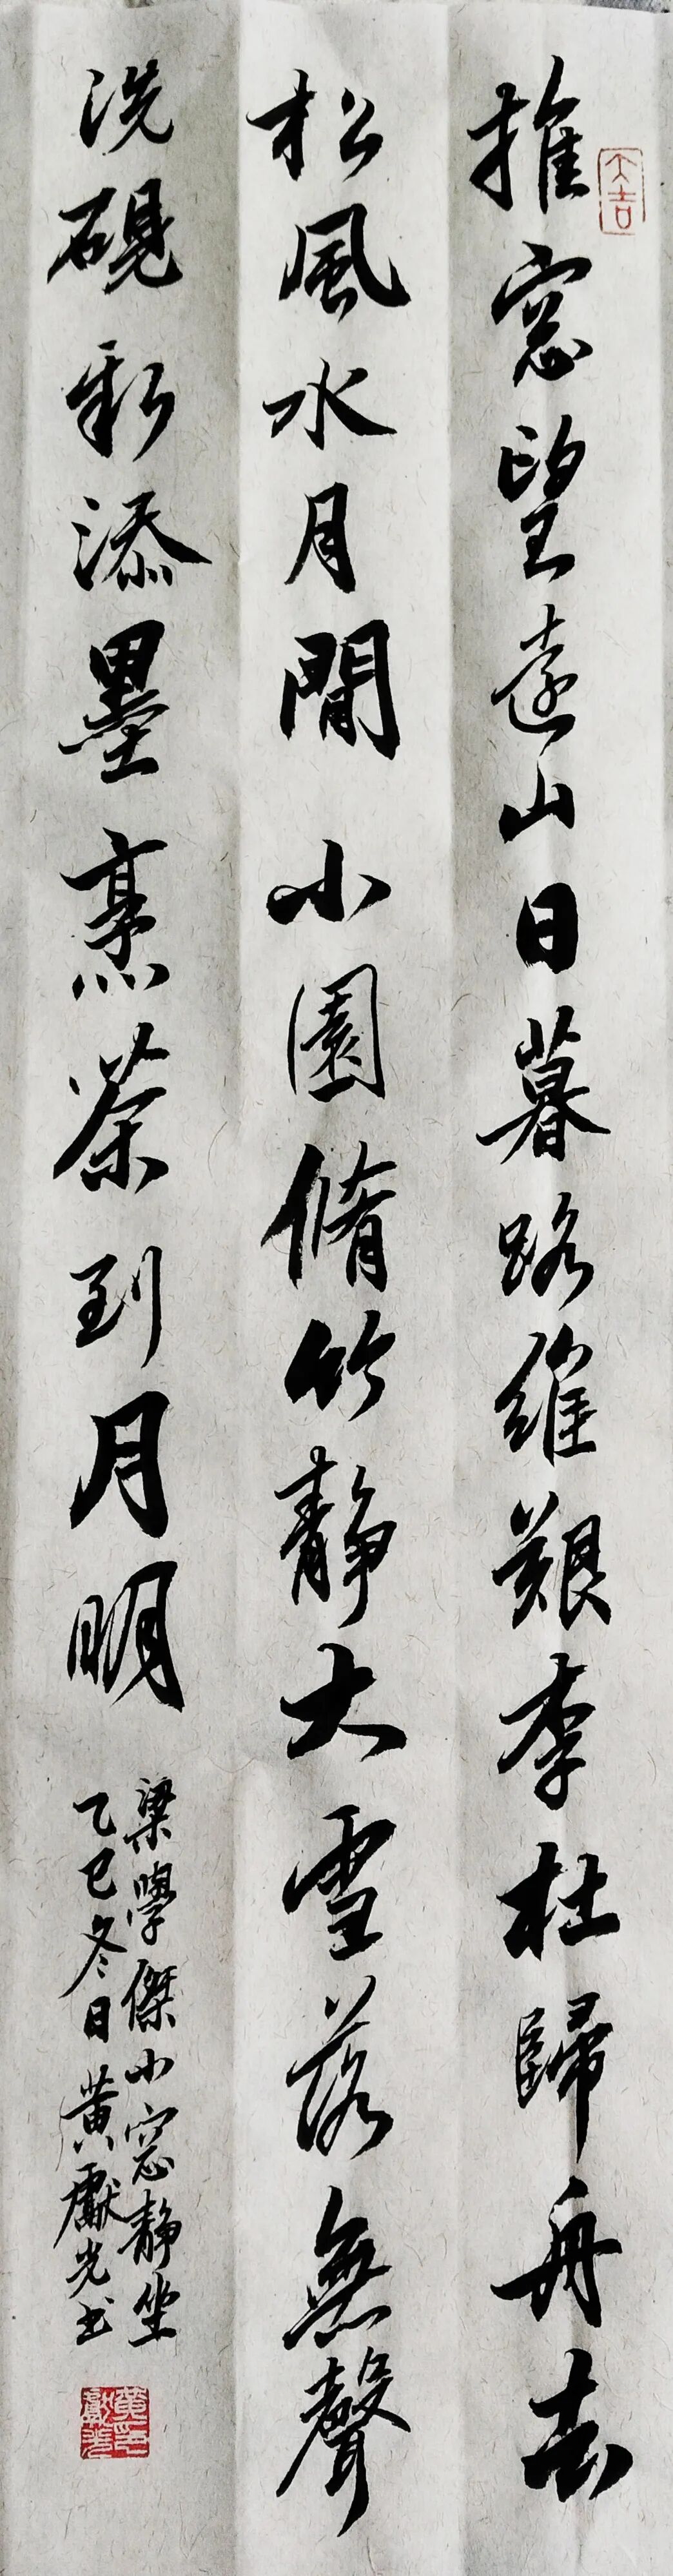 大吉
推窓望遠山日暮路維艱李杜歸舟去
松風水月間小園脩竹靜大雪落無聲
洗硯新添墨烹茶到月明
梁學傑小窓靜坐
乙巳冬日黃獻光書
黃獻光印